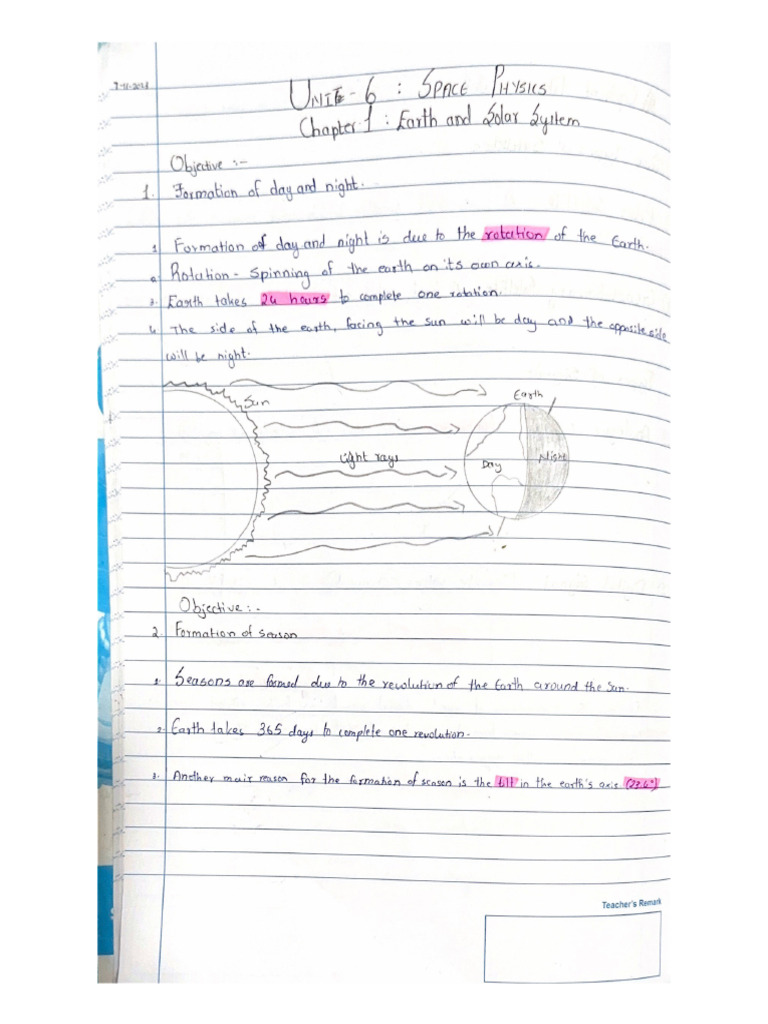 UNIT - 6 : SPACE PHYSICS
Chapter 1 : Earth and Solar System
Objective :-
1. Formation of day and night.
1. Formation of day and night is due to the rotation of the Earth.
2. Rotation - Spinning of the earth on its own axis.
3. Earth takes 24 hours to complete one rotation.
4. The side of the earth, facing the sun will be day and the opposite side
will be night.
Earth
Sun
Light rays
Day
Night
Objective :-
2. Formation of season
1. Seasons are formed due to the revolution of the Earth around the Sun.
2. Earth takes 365 days to complete one revolution.
3. Another main reason for the formation of season is the tilt in the earth's axis (23.4°)
Teacher's Remark